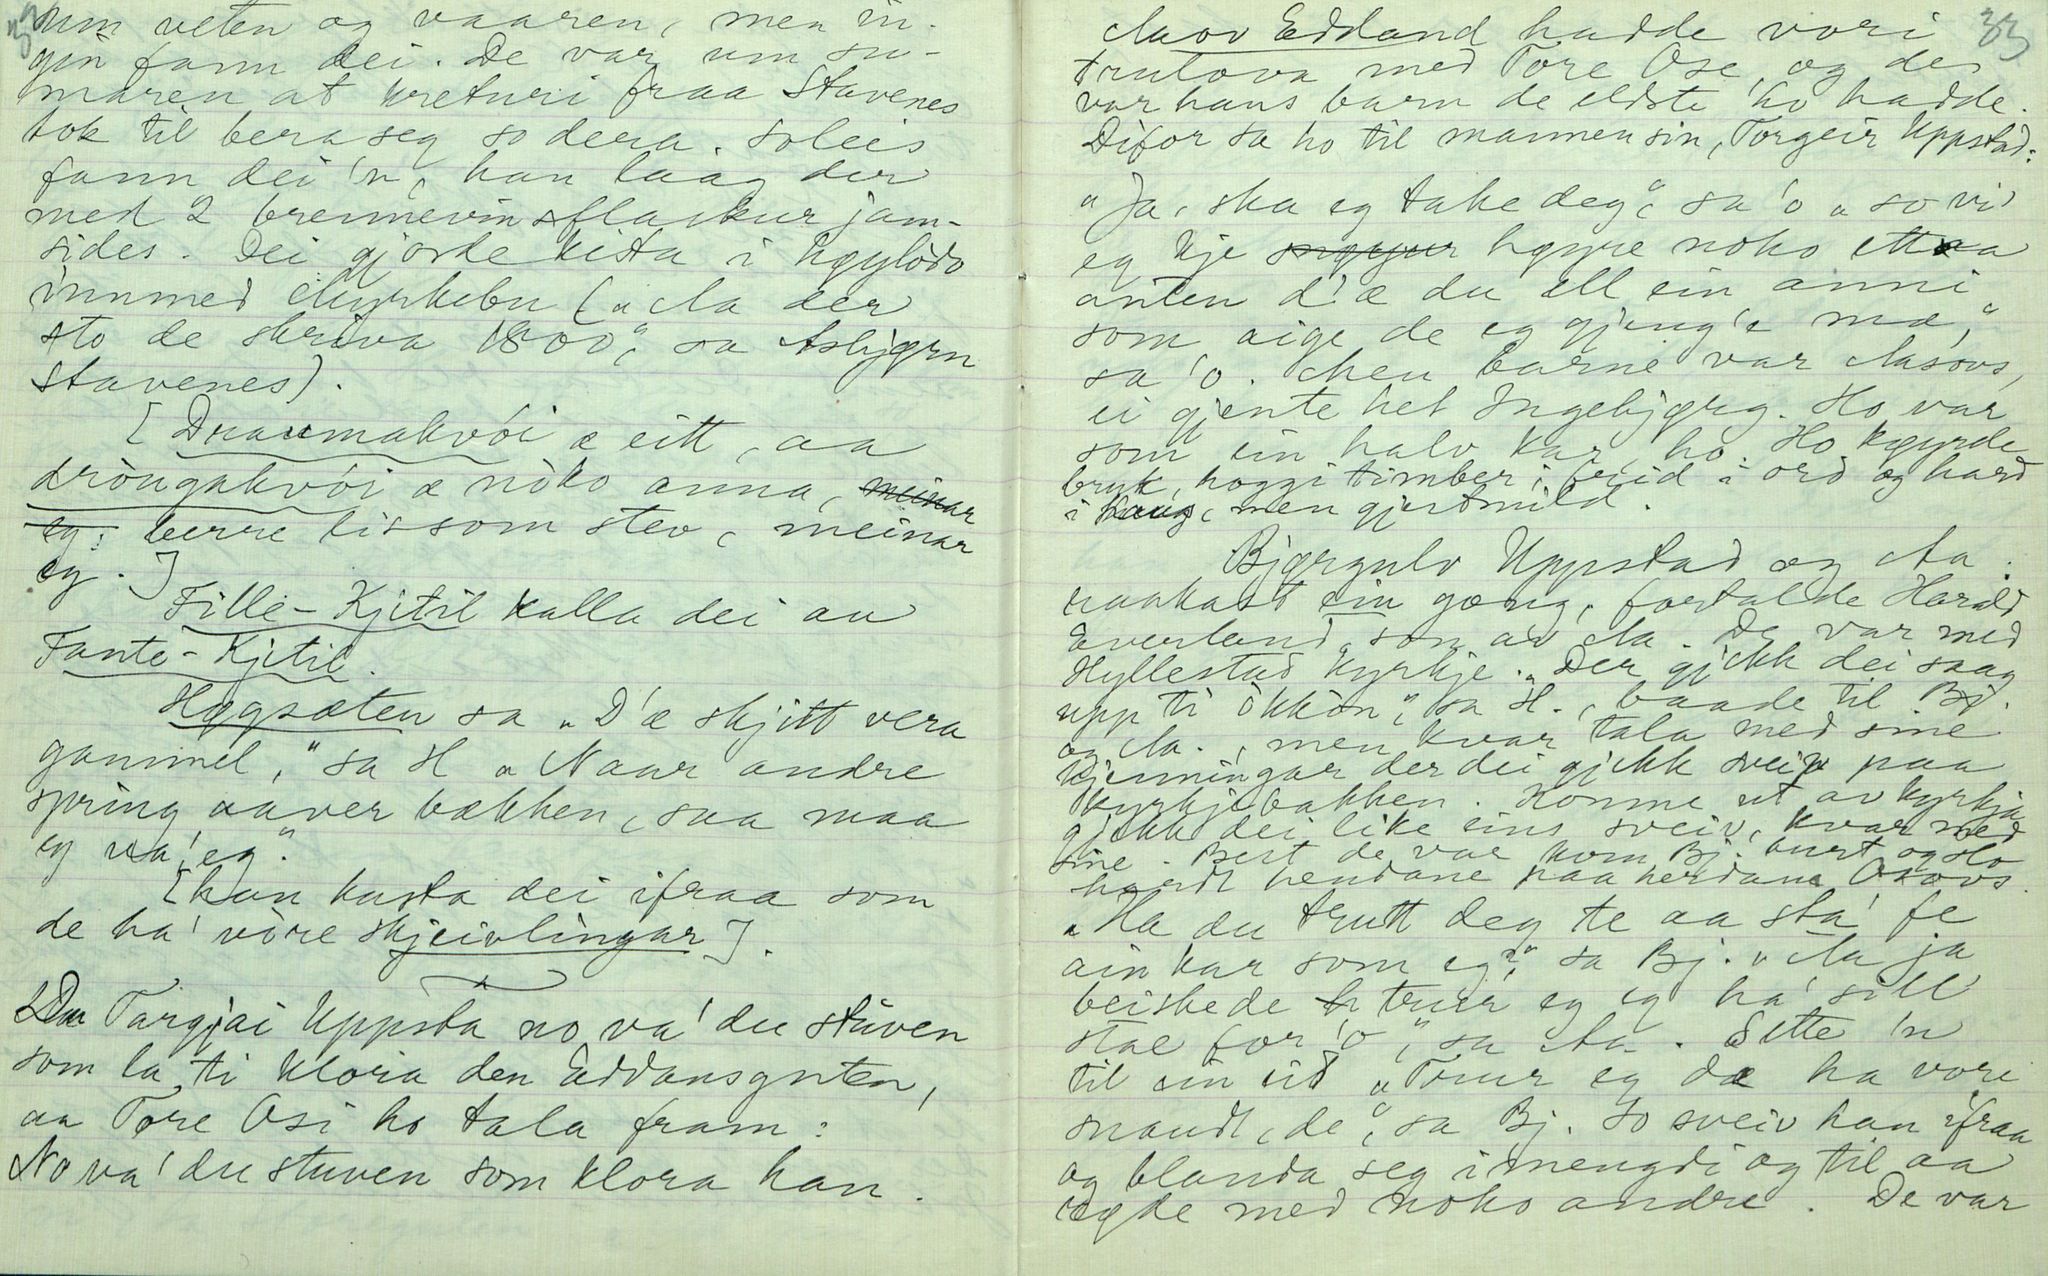 um veten og vaaren, men in-
gin fann dei. De var um su-
maren at kreturi fraa Stavenes
tok til bera seg so dera. Soleis
fann dei 'n, han laag der
med 2 brennevinsflaskur jam-
sides. Dei gjorde kista i høylodo
innmed Myrkebu („Aa der
sto de skriva 1800“, sa Asbjørn
Stavenes).
[Draumakvói æ eitt, aa
dròngakvói æ nòko anna, meinar
eg: berre lissom stev, meinar
eg.]
Fille-Kjitil kalla dei au
Fante-Kjitil.
Høgsæten sa „D'æ skjitt vera
gammel,“ sa H „Naar andre
spring aaver bækken, saa maa
eg va' eg.“
[han kasta dei ifraa som
de ha' vòre skjeivlingar].
Du Targjai Uppsta no va' du stuven
som la ti klora den Eddansguten,
aa Tore Osi ho tala fram:
No va' du stuven som klora han.
33
Aasov Eddand hadde vori
trulova med Tore Ose, og des
var hans barn de eldste ho hadde.
Difor sa ho til mannen sin, Torgeir Uppstad:
„Ja, ska eg take deg“, sa 'o „so vi
eg kje høyre noko ettaa
anten d'æ du ell ein anni,
som aige de eg gjeng'e mæ,“
sa 'o. Men barne var Aasovs,
ei gjente het Ingebjørg. Ho var
som ein halv kar, ho. Ho køyrde
bruk, hoggi timber; breid i ord og hard
i, men gjestmild.
Bjørgulv Uppstad og Aa.
raakast ein gong, fortalde Harald
Åverland, son av Aa. De var med
Hyllestad kyrkje. „Der gjekk dei saag
upp ti òkkòn“, sa H., baade til Bj.
og Aa., men kvar tala med sine
kjenningar der dei gjekk sveiv paa
kyrkjebakken. Komne ut av kyrkja
gjekk dei like eins sveiv, kvar med
sine. Best de var kom Bj. burt og slo
hardt hendane paa herdane Osovs.
„Ha du trutt deg te aa sta' fe
ain kar som eg?“ sa Bj. „Aa ja
beiskede truir eg eg ha' sill
stae for 'o“, sa Aa. Sette 'n
til ein eid „Truir eg dæ ha vore
snaudt, de“, sa Bj. So sveiv han ifraa
og blanda seg i mengdi og til aa
røde med noko andre. De var